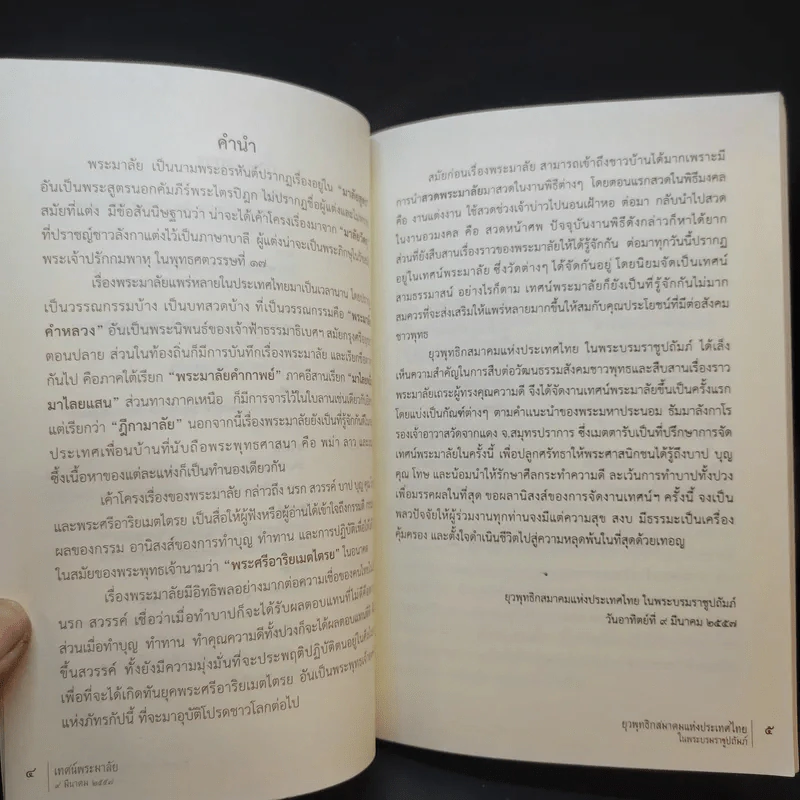 คำนำ
พระมาลัย เป็นนามพระอรหันต์ปรากฏเรื่องอยู่ใน
อันเป็นพระสูตรนอกคัมภีร์พระไตรปิฎก ไม่ปรากฏชื่อผู้แต่งและ
สมัยที่แต่ง มีข้อสันนิษฐานว่า น่าจะได้เค้าโครงเรื่องมาจาก
ที่ปราชญ์ชาวลังกาแต่งไว้เป็นภาษาบาลี ผู้แต่งน่าจะเป็นพระภิกษุ
พระเจ้าปรักกมพาหุ ในพุทธศตวรรษที่ ๑๗
เรื่องพระมาลัยแพร่หลายในประเทศไทยมาเป็นเวลานาน
เป็นวรรณกรรมบ้าง เป็นบทสวดบ้าง ที่เป็นวรรณกรรมคือ
คำหลวง” อันเป็นพระนิพนธ์ของเจ้าฟ้าธรรมาธิเบศฯ
ตอนปลาย ส่วนในท้องถิ่นก็มีการบันทึกเรื่องพระมาลัย และเรียกชื่อ
กันไป คือภาคใต้เรียก “พระมาลัยคำกาพย์” ภาคอีสานเรียก
มาไลยแสน” ส่วนทางภาคเหนือ ก็มีการจารไว้ในใบลานเช่นเดียวกัน
แต่เรียกว่า “ฎีกามาลัย” นอกจากนี้เรื่องพระมาลัยยังเป็นที่รู้จักกันดี
ประเทศเพื่อนบ้านที่นับถือพระพุทธศาสนา คือ พม่า ลาว และ
ซึ่งเนื้อหาของแต่ละแห่งก็เป็นทำนองเดียวกัน
เค้าโครงเรื่องของพระมาลัย กล่าวถึง นรก สวรรค์ บาป บุญ
และพระศรีอาริยเมตไตรย เป็นสื่อให้ผู้ฟังหรือผู้อ่านได้เข้าใจถึงกรรมดี
ผลของกรรม อานิสงส์ของการทำบุญ ทำทาน และการปฏิบัติ
ในสมัยของพระพุทธเจ้านามว่า “พระศรีอาริยเมตไตรย” ในอนาคต
เรื่องพระมาลัยมีอิทธิพลอย่างมากต่อความเชื่อของคนไทย
นรก สวรรค์ เชื่อว่าเมื่อทำบาปก็จะได้รับผลตอบแทนที่ไม่ดี
ส่วนเมื่อทำบุญ ทำทาน ทำคุณความดีทั้งปวงก็จะได้ผลตอบแทนที่ดี
ขึ้นสวรรค์ ทั้งยังมีความมุ่งมั่นที่จะประพฤติปฏิบัติตนอยู่ใน
เพื่อที่จะได้เกิดทันยุคพระศรีอาริยเมตไตรย อันเป็นพระพุทธเจ้า
แห่งภัทรกัปนี้ ที่จะมาอุบัติโปรดชาวโลกต่อไป
๔ เทศน์พระมาลัย
๙ มีนาคม ๒๕๕๗
สมัยก่อนเรื่องพระมาลัย สามารถเข้าถึงชาวบ้านได้มากเพราะมี
การนำสวดพระมาลัยมาสวดในงานพิธีต่างๆ โดยตอนแรกสวดในพิธีมงคล
คือ งานแต่งงาน ใช้สวดช่วงเจ้าบ่าวไปนอนเฝ้าหอ ต่อมา กลับนำไปสวด
ในงานอวมงคล คือ สวดหน้าศพ ปัจจุบันงานพิธีดังกล่าวก็หาได้ยาก
ส่วนที่ยังสืบสานเรื่องราวของพระมาลัยให้ได้รู้จักกัน ต่อมาทุกวันนี้ปรากฏ
อยู่ในเทศน์พระมาลัย ซึ่งวัดต่างๆ ได้จัดกันอยู่ โดยนิยมจัดเป็นเทศน์
สามธรรมาสน์ อย่างไรก็ตาม เทศน์พระมาลัยก็ยังเป็นที่รู้จักกันไม่มาก
สมควรที่จะส่งเสริมให้แพร่หลายมากขึ้นให้สมกับคุณประโยชน์ที่มีต่อสังคม
ชาวพุทธ
ยุวพุทธิกสมาคมแห่งประเทศไทย ในพระบรมราชูปถัมภ์ ได้เล็ง
เห็นความสำคัญในการสืบต่อวัฒนธรรมสังคมชาวพุทธและสืบสานเรื่องราว
พระมาลัยเถระผู้ทรงคุณความดี จึงได้จัดงานเทศน์พระมาลัยขึ้นเป็นครั้งแรก
โดยแบ่งเป็นกัณฑ์ต่างๆ ตามคำแนะนำของพระมหาประนอม ธัมมาลังกาโร
รองเจ้าอาวาสวัดจากแดง จ.สมุทรปราการ ซึ่งเมตตารับเป็นที่ปรึกษาการจัด
เทศน์พระมาลัยในครั้งนี้ เพื่อปลูกศรัทธาให้พระศาสนิกชนได้รู้ถึงบาป บุญ
คุณ โทษ และน้อมนำให้รักษาศีลกระทำความดี ละเว้นการทำบาปทั้งปวง
เพื่อมรรคผลในที่สุด ขอผลานิสงส์ของการจัดงานเทศน์ฯ ครั้งนี้ จงเป็น
พลวปัจจัยให้ผู้ร่วมงานทุกท่านจงมีแต่ความสุข สงบ มีธรรมะเป็นเครื่อง
คุ้มครอง และตั้งใจดำเนินชีวิตไปสู่ความหลุดพ้นในที่สุดด้วยเทอญ
ยุวพุทธิกสมาคมแห่งประเทศไทย ในพระบรมราชูปถัมภ์
วันอาทิตย์ที่ ๙ มีนาคม ๒๕๕๗
ยุวพุทธิกสมาคมแห่งประเทศไทย ๕
ในพระบรมราชูปถัมภ์